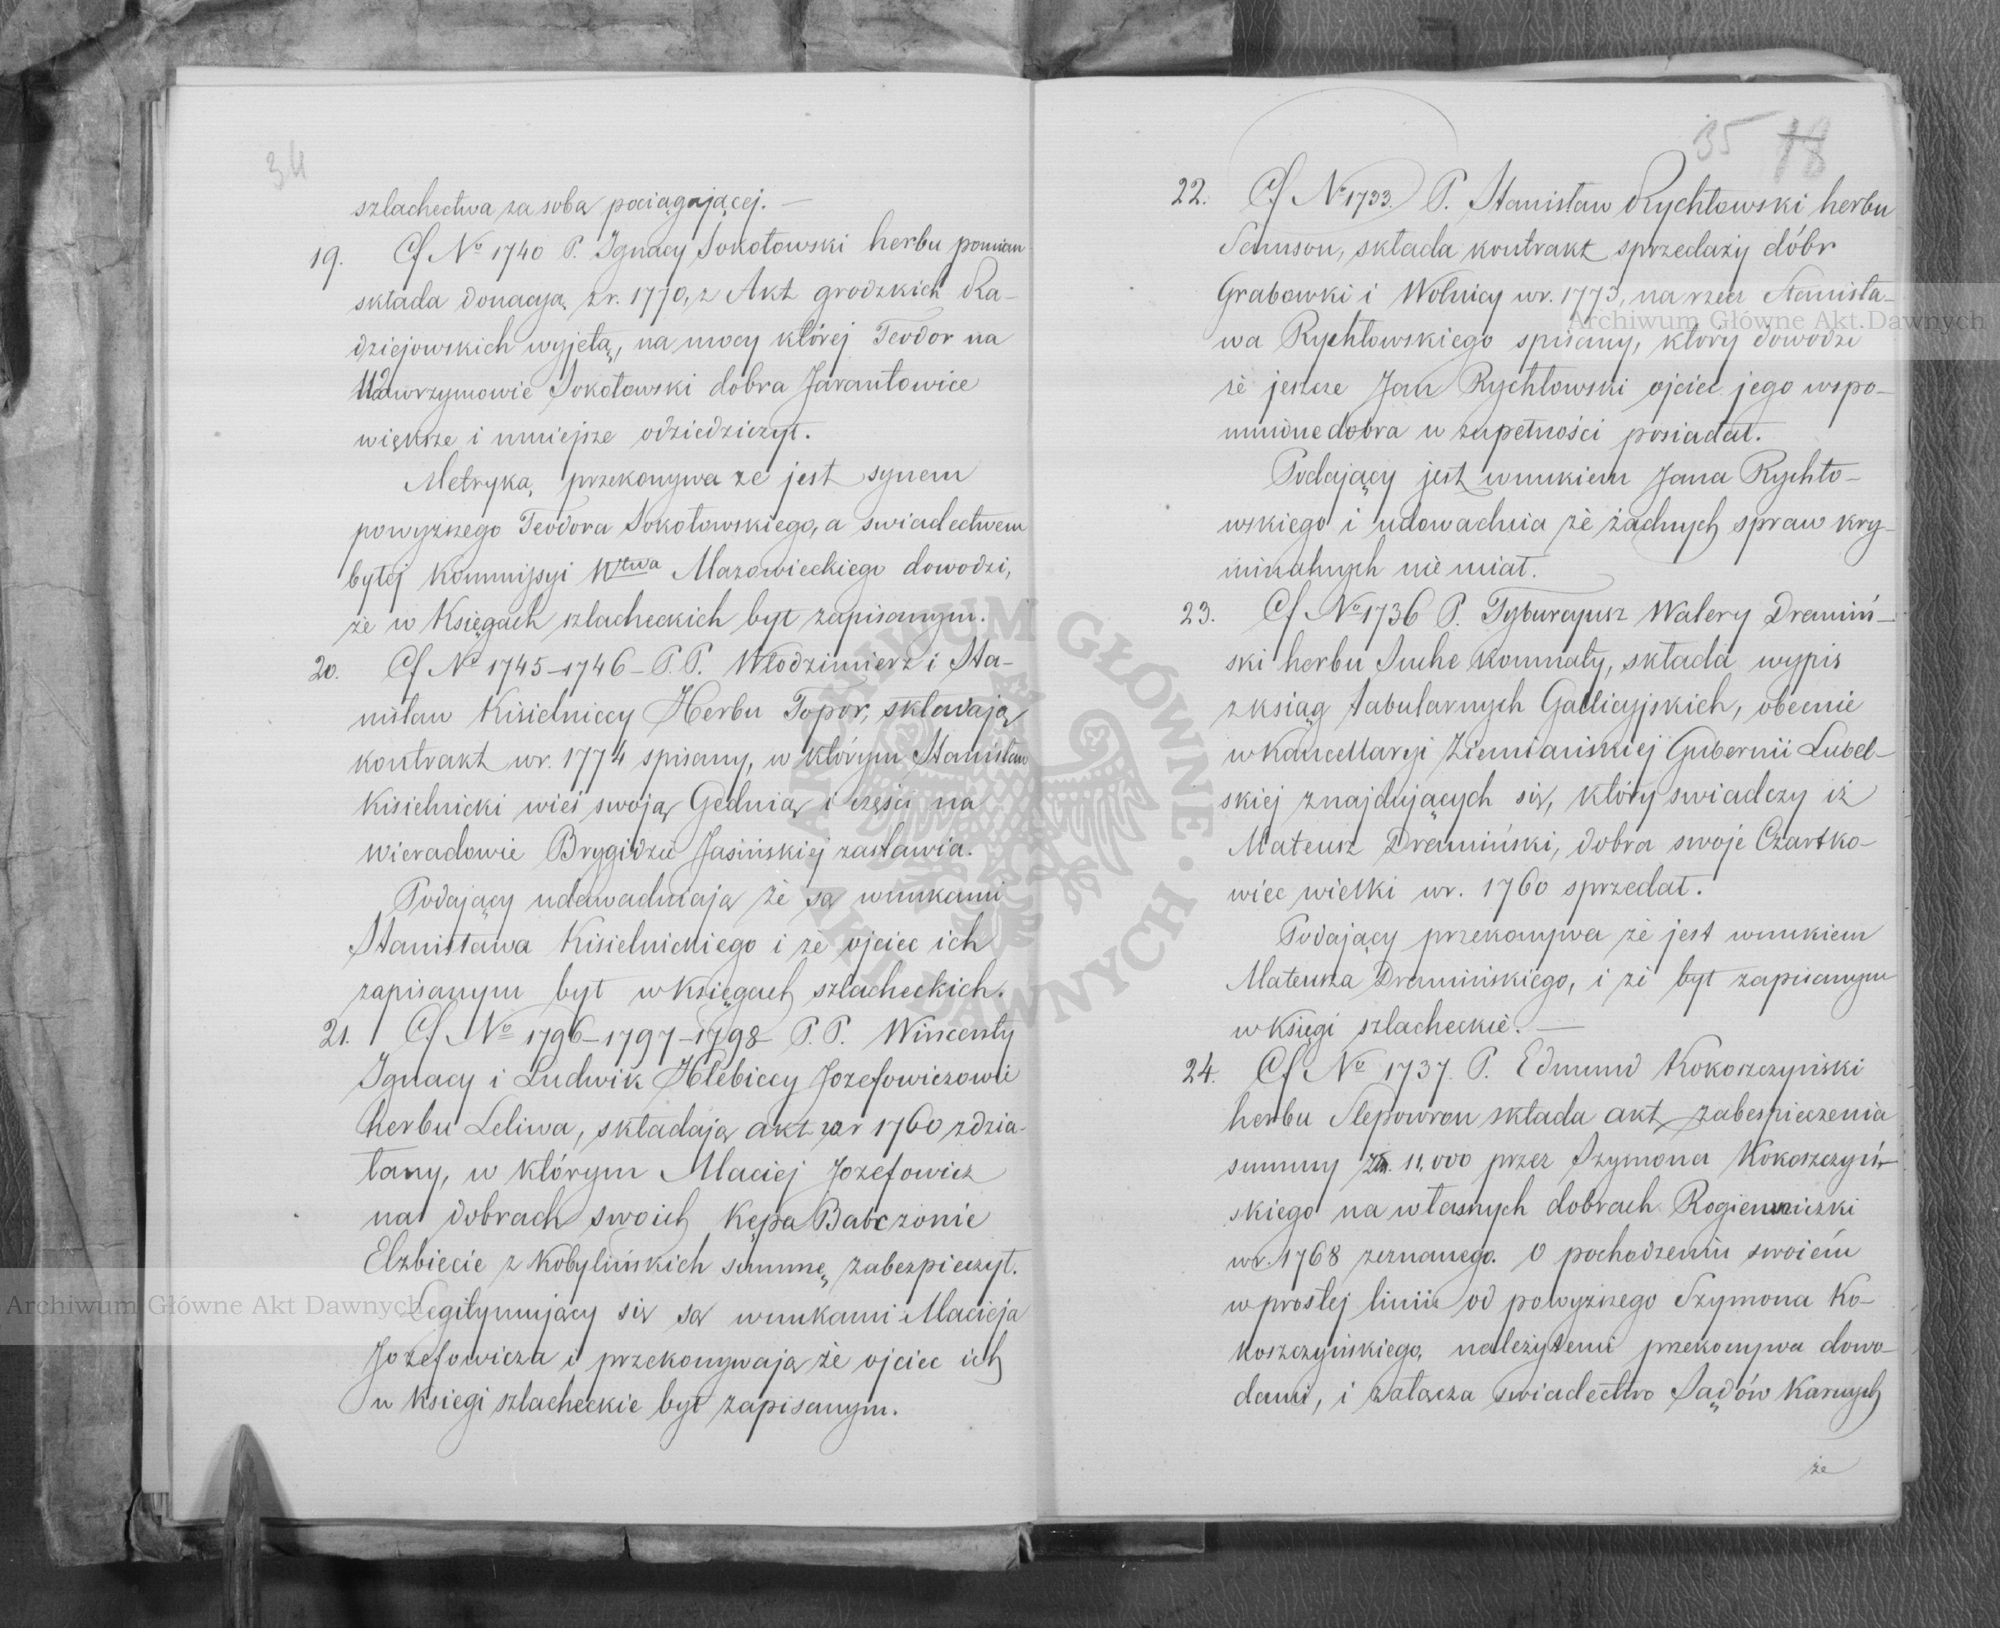 34
szlachectwa za sobą pociągającej. —
19. Cf No 1740 P. Ignacy Sokołowski herbu pomian
składa donacyą z r. 1770, z Akt grodzkich Ra-
dziejowskich wyjętą, na mocy której Teodor na
Wawrzymowie Sokołowski dobra Jarantowice
większe i mniejsze odziedziczył.
Metryką przekonywa że jest synem
powyższego Teodora Sokołowskiego, a swiadectwem
byłej Kommissyi Wtwa Mazowieckiego dowodzi,
że w Księgach szlacheckich był zapisanym.
20. Cf No 1745-1746 - P.P. Włodzimierz i Sta-
nisław Kisielniccy Herbu Topor, składają
kontrakt w r. 1774 spisany, w którym Stanisław
Kisielnicki wieś swoją Gednią i części na
Wieradowie Brygidzie Jasińskiej zastawia.
Podający udawadniają że są wnukami
Stanisława Kisielnickiego i że ojciec ich
zapisanym był w księgach szlacheckich.
21. Cf No 1796-1797-1798 - P.P. Wincenty
Ignacy i Ludwik Hlebiccy Jozefowiczowie
herbu Leliwa, składają akt w r 1760 zdzia-
łany, w którym Maciej Jozefowicz
na dobrach swoich Kępa Babczonie
Elzbiecie z Kobylińskich summę zabezpieczył.
Legitymujący się są wnukami Macieja
Jozefowicza i przekonywają że ojciec ich
w księgi szlacheckie był zapisanym.
35 18
22. Cf No 1733. P. Stanisław Rychłowski herbu
Samson, składa kontrakt sprzedaży dóbr
Grabowki i Wolnicy w r. 1773, na rzecz Stanisła-
wa Rychłowskiego spisany, który dowodzi
że jeszcze Jan Rychłowski ojciec jego wspo-
mnione dobra w zupełności posiadał.
Podający jest wnukiem Jana Rychło-
wskiego i udowadnia że żadnych spraw kry-
minalnych nie miał.
23. Cf No 1736 P. Tyburcyusz Walery Dramiń-
ski herbu Suche Komnaty, składa wypis
z ksiąg tabularnych Gallicyjskich, obecnie
w Kancellaryi Ziemiańskiej Gubernii Lubel-
skiej znajdujących się, który swiadczy iż
Mateusz Dramiński, dobra swoje Czartko-
wiec wielki w r. 1760 sprzedał.
Podający przekonywa że jest wnukiem
Mateusza Dramińskiego, i że był zapisanym
w księgi szlacheckie. —
24. Cf No 1737. P. Edmund Kokoszczyński
herbu Slepowron składa akt zabespieczenia
summy złr. 11,000 przez Szymona Kokoszczyń-
skiego na własnych dobrach Rogienniczki
w r. 1768 zeznanego. O pochodzeniu swoiém
w prostej linii od powyższego Szymona Ko-
koszczyńskiego, należytemi przekonywa dowo-
dami, i załącza swiadectwo Sądów Karnych
że
Archiwum Główne Akt Dawnych
Archiwum Główne Akt Dawnych
ARCHIWUM GŁÓWNE AKT DAWNYCH